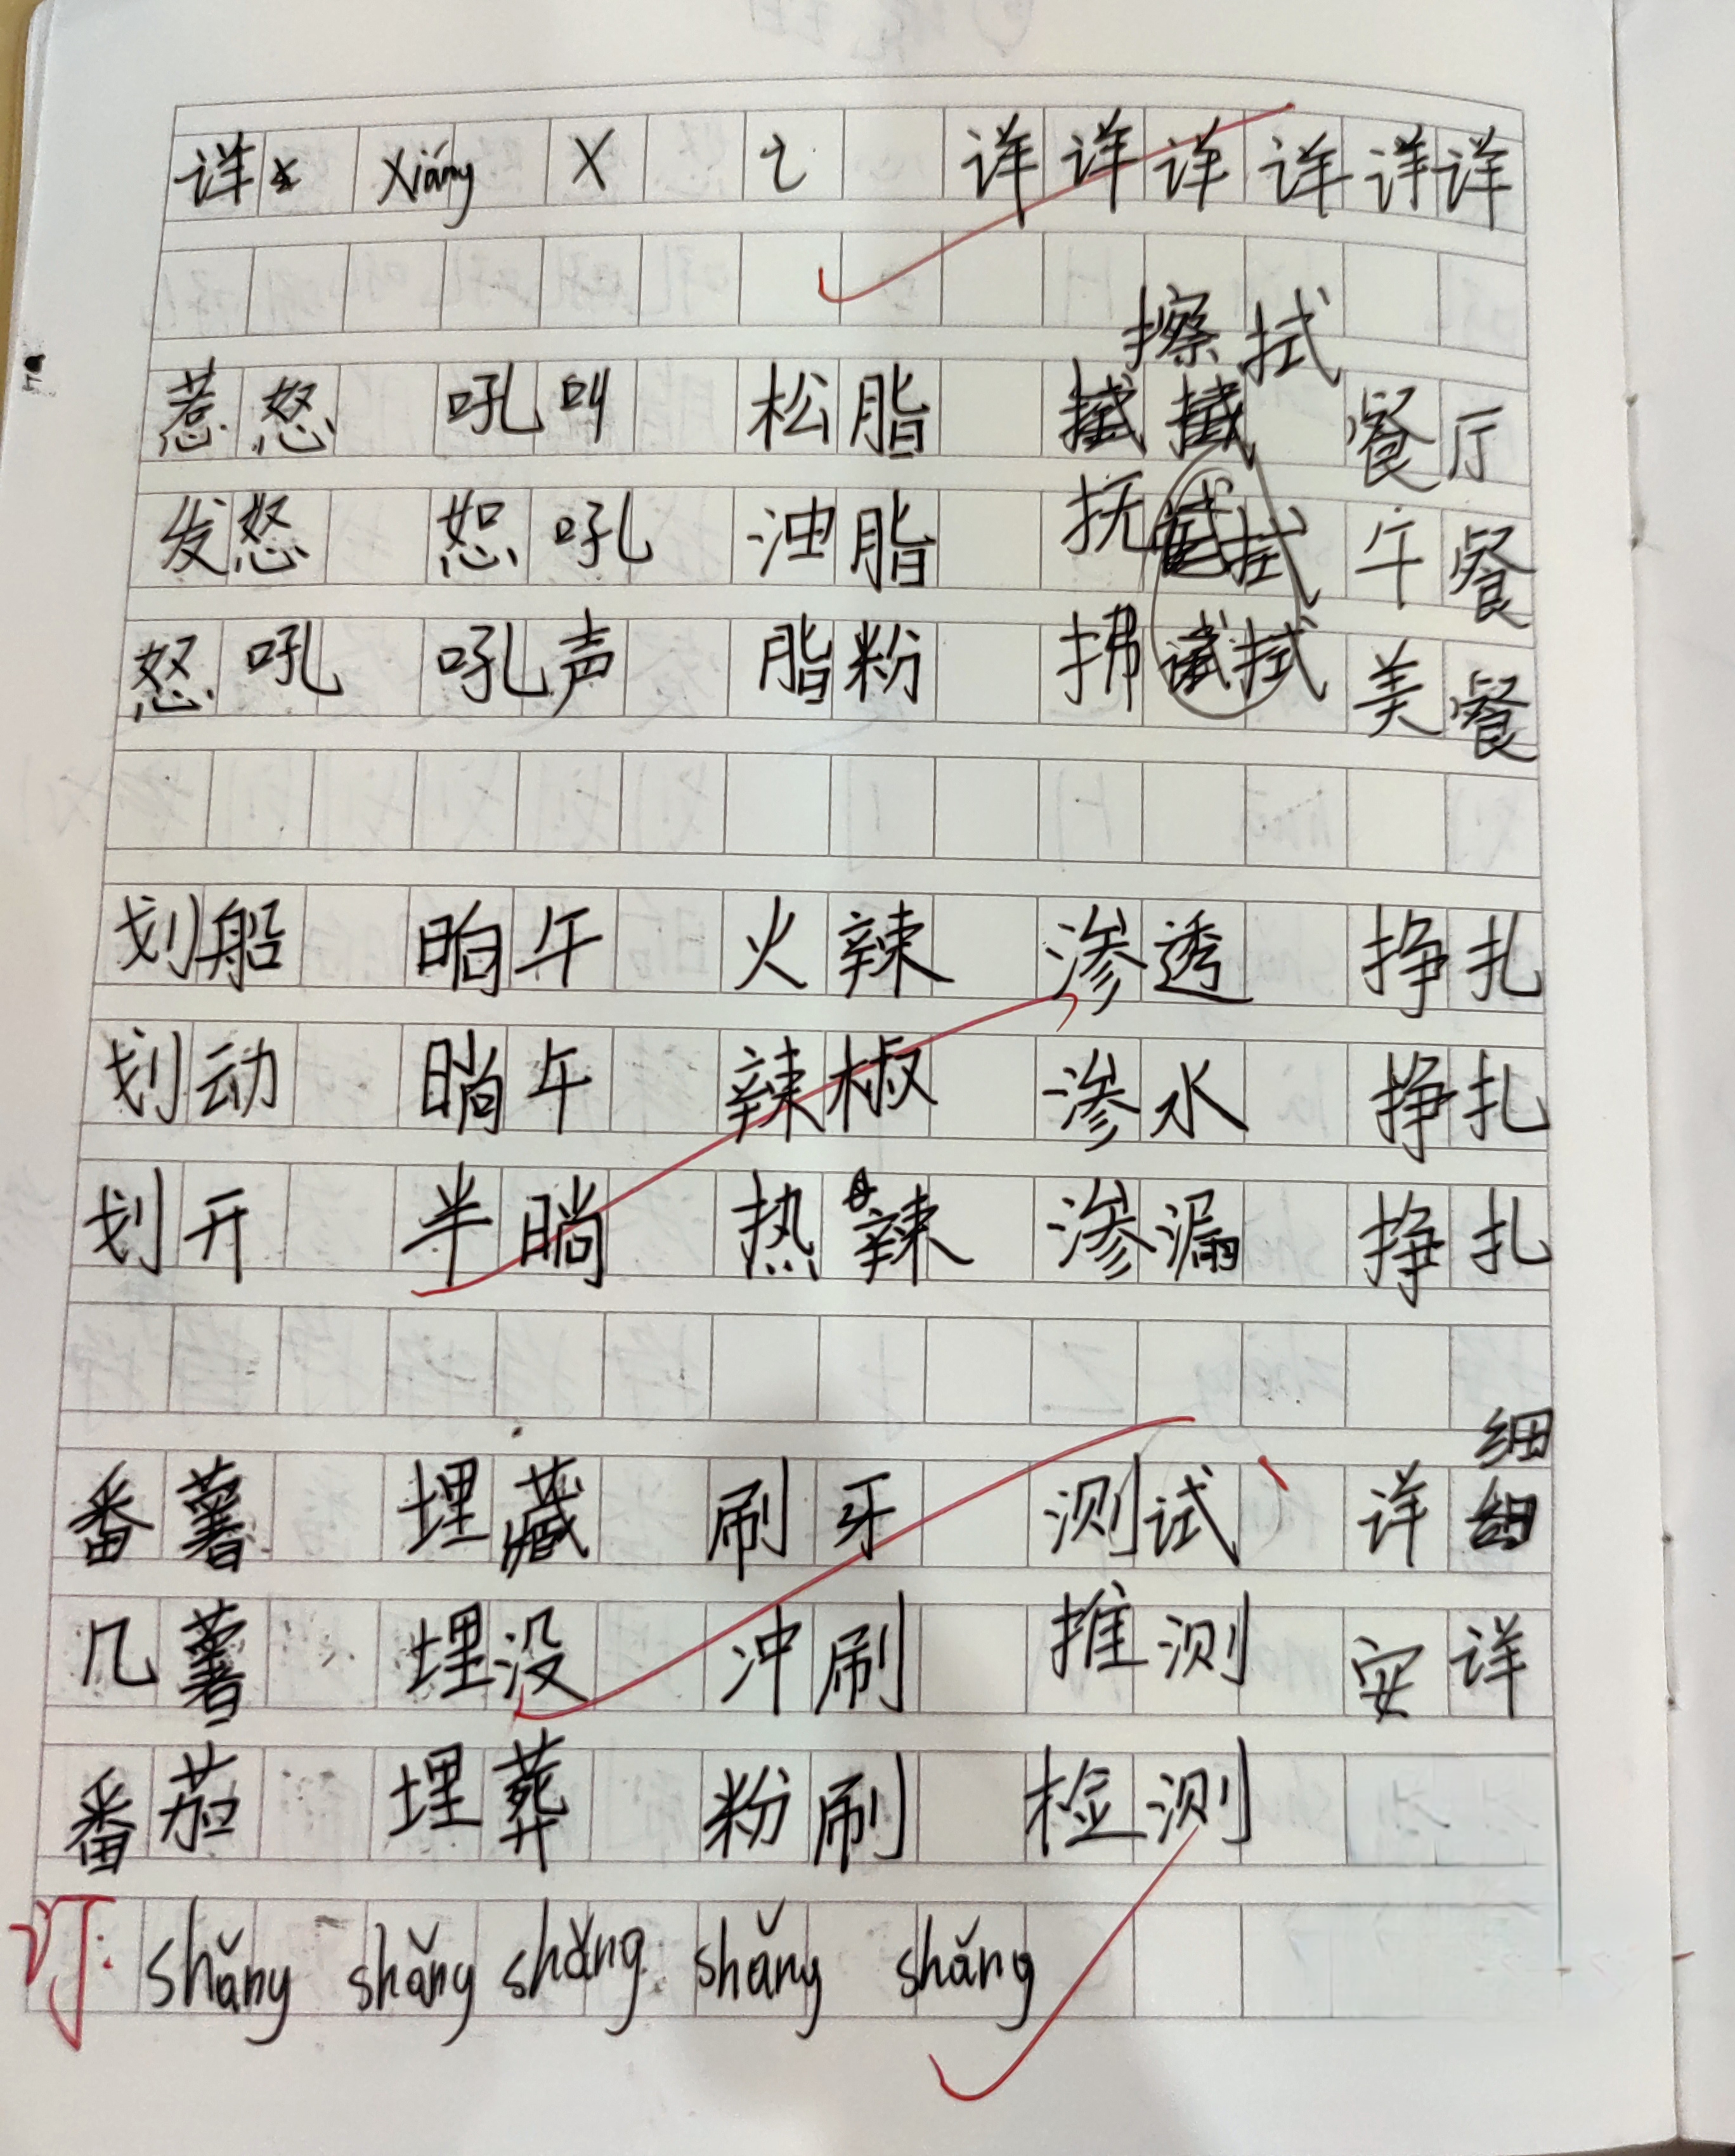 详 xiáng X 讠 详 详 详 详 详 详
擦拭
惹怒 吼叫 松脂 餐厅
发怒 恕吼 油脂 抚拭 午餐
怒吼 吼声 脂粉 拂拭 美餐
划船 晌午 火辣 渗透 挣扎
划动 晌午 辣椒 渗水 挣扎
划开 半晌 热辣 渗漏 挣扎
细
番薯 埋藏 刷牙 测试 详
几薯 埋没 冲刷 推测 安详
番茄 埋葬 粉刷 检测
订: shǎng shǎng shǎng shǎng shǎng